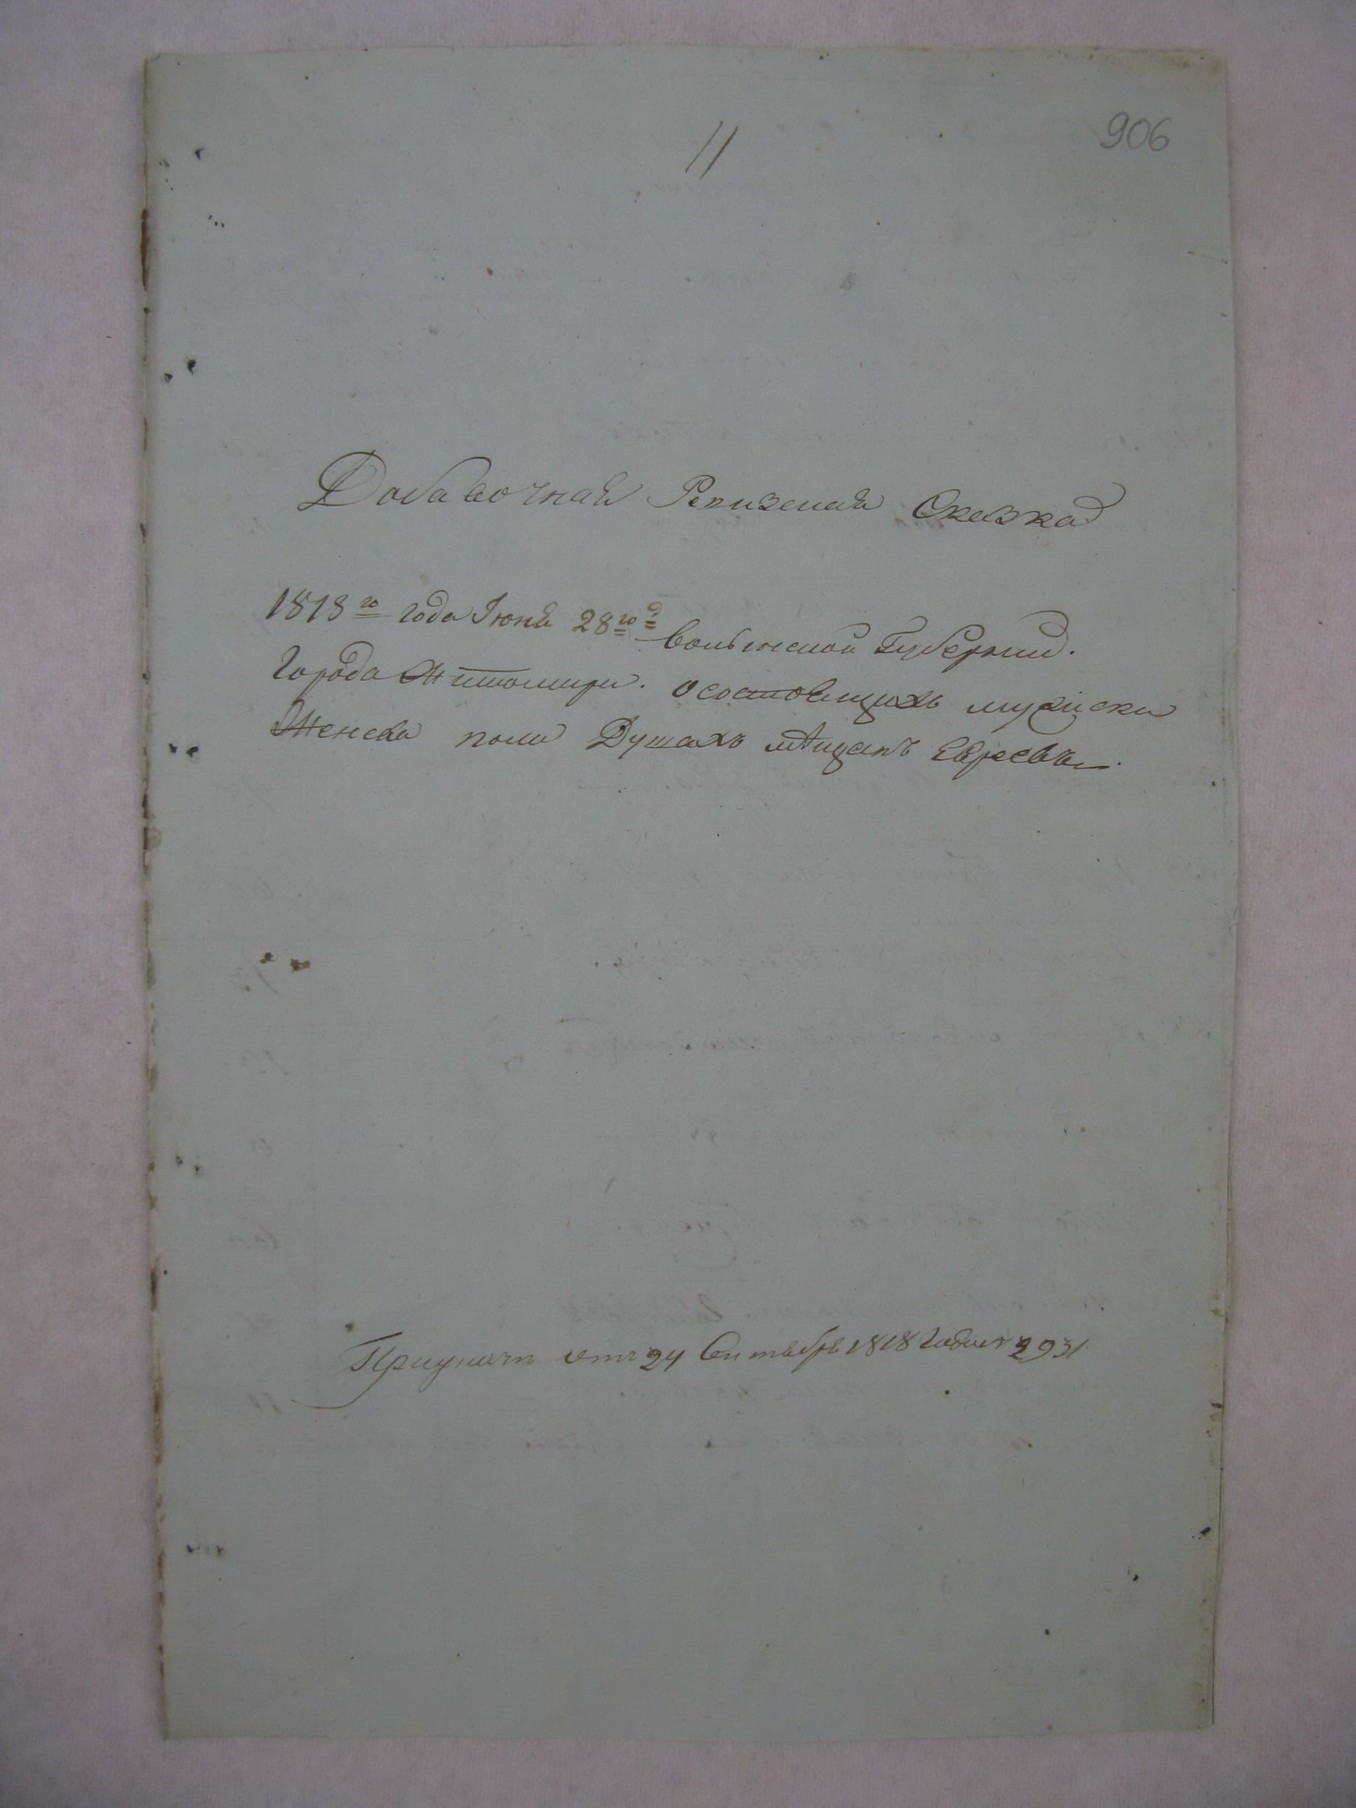 906
11
Добавочная Ревизская Сказка
1818го года Іюня 28го д Волынской Губерніи.
Города Житомира. о состоящихъ мужеска
Женска пола Душахъ мѣщанъ Евреевъ.
При указе от 24 Сентября 1818 Года № 2931